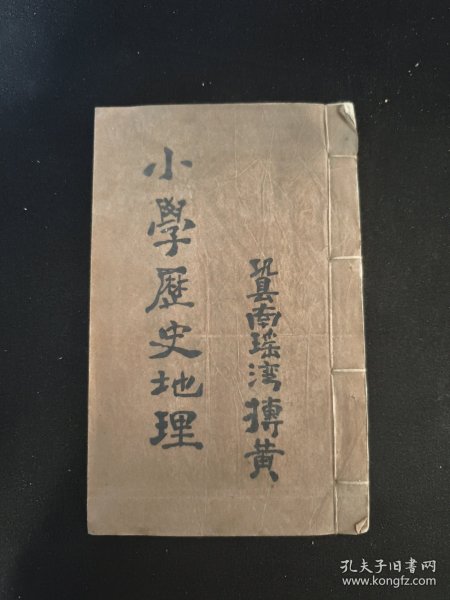 小學歷史地理
巩县南瑶湾摶黄
孔夫子旧书网
www.kongfz.com